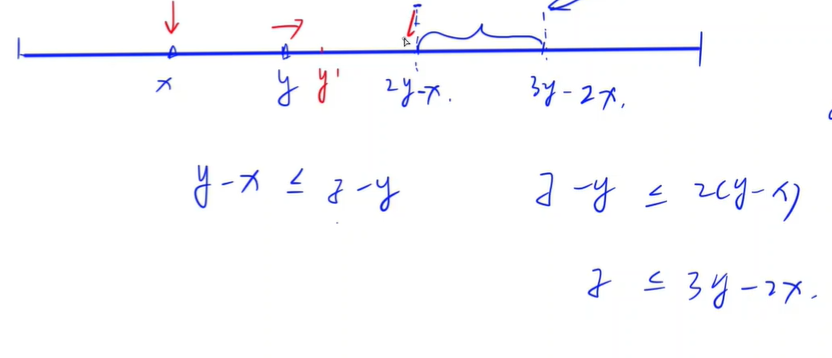 x y y' 2y-x. 3y-2x.
y-x ≤ z-y z-y ≤ 2(y-x)
z ≤ 3y-2x.